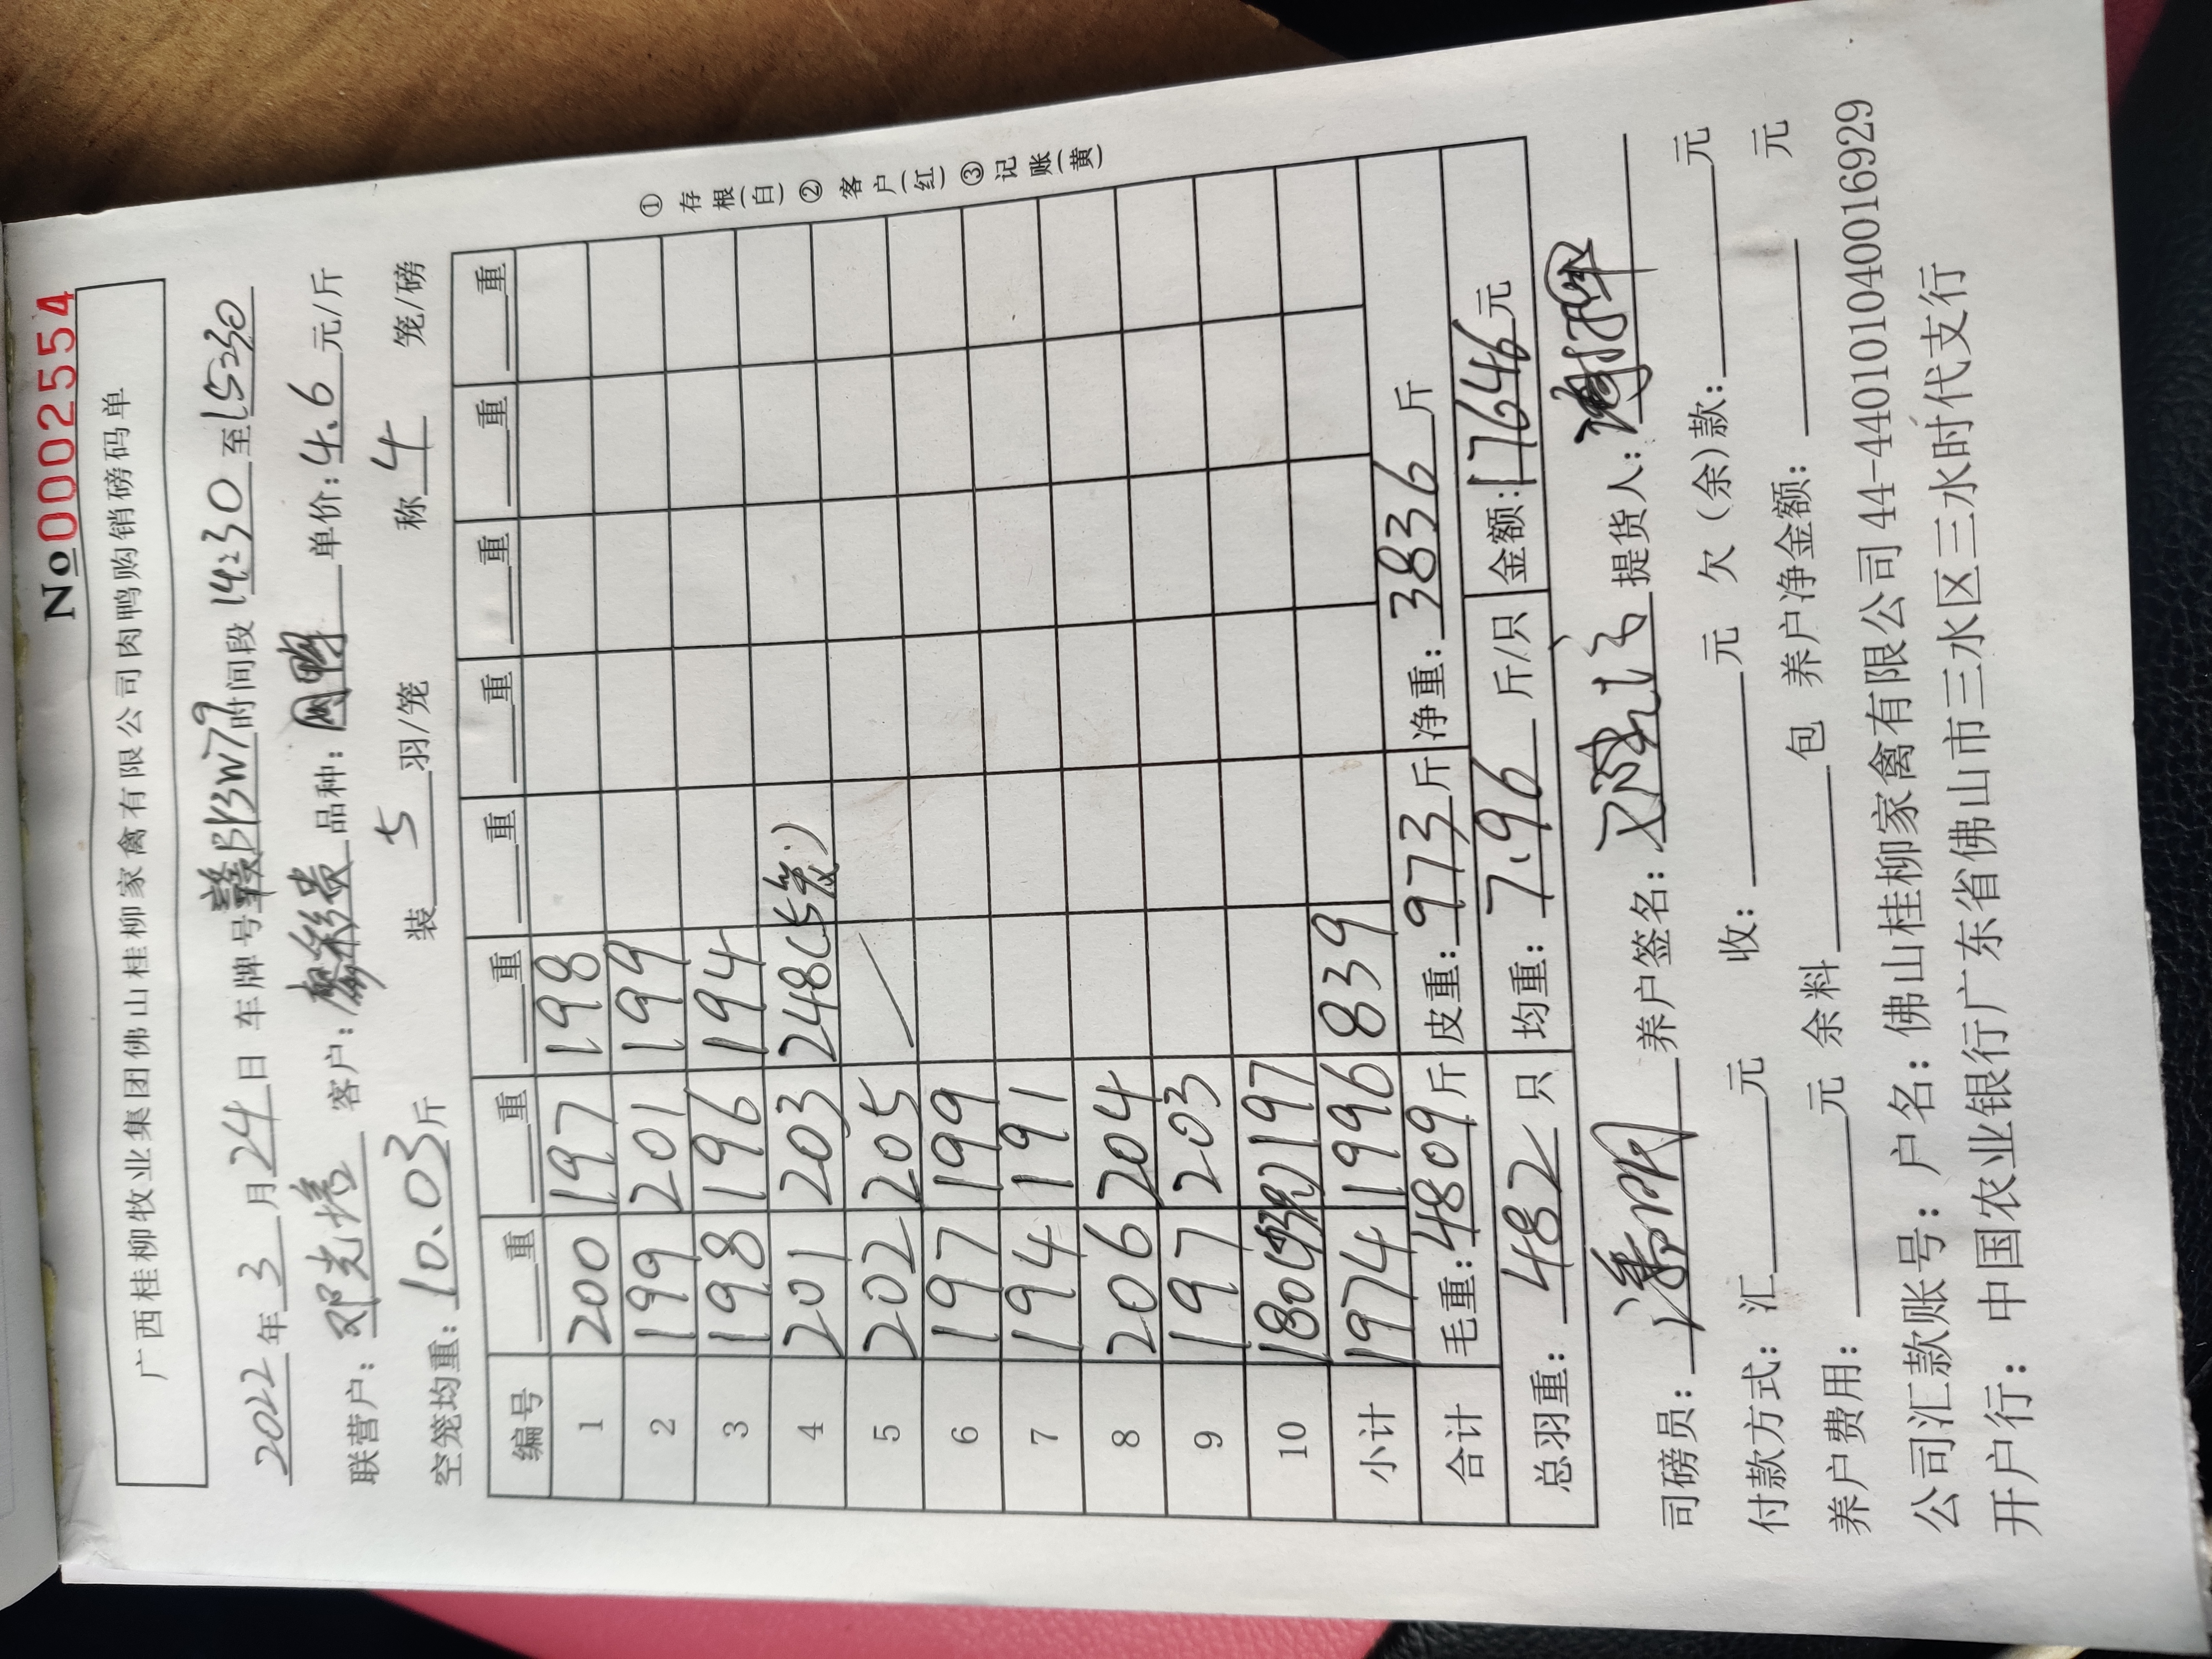 No 0002554
广西桂柳牧业集团佛山桂柳家禽有限公司肉鸭购销磅码单
2022年3月24日 车牌号赣B13W79时间段14:30至15:30
联营户:邓光 客户:廖彩贵 品种: 单价:4.6元/斤
空笼均重:10.03斤 装5羽/笼 称4笼/磅
编号 重 重 重 重 重 重 重 重
1 200 197 198
2 199 201 199
3 198 196 194
4 201 203 248(5笼)
5 202 205
6 197 199
7 194 191
8 206 204
9 197 203
10 180( 197
小计 1974 1996 839
合计 毛重:4809斤 皮重:973斤 净重:3836斤
总羽重:482只 均重:7.96斤/只 金额:17646元
①存根(白)②客户(红)③记账(黄)
司磅员: 养户签名: 提货人:
付款方式:汇 元 收: 元 欠(余)款: 元
养户费用: 元 余料 包 养户净金额: 元
公司汇款账号:户名:佛山桂柳家禽有限公司 44-440101040016929
开户行:中国农业银行广东省佛山市三水区三水时代支行